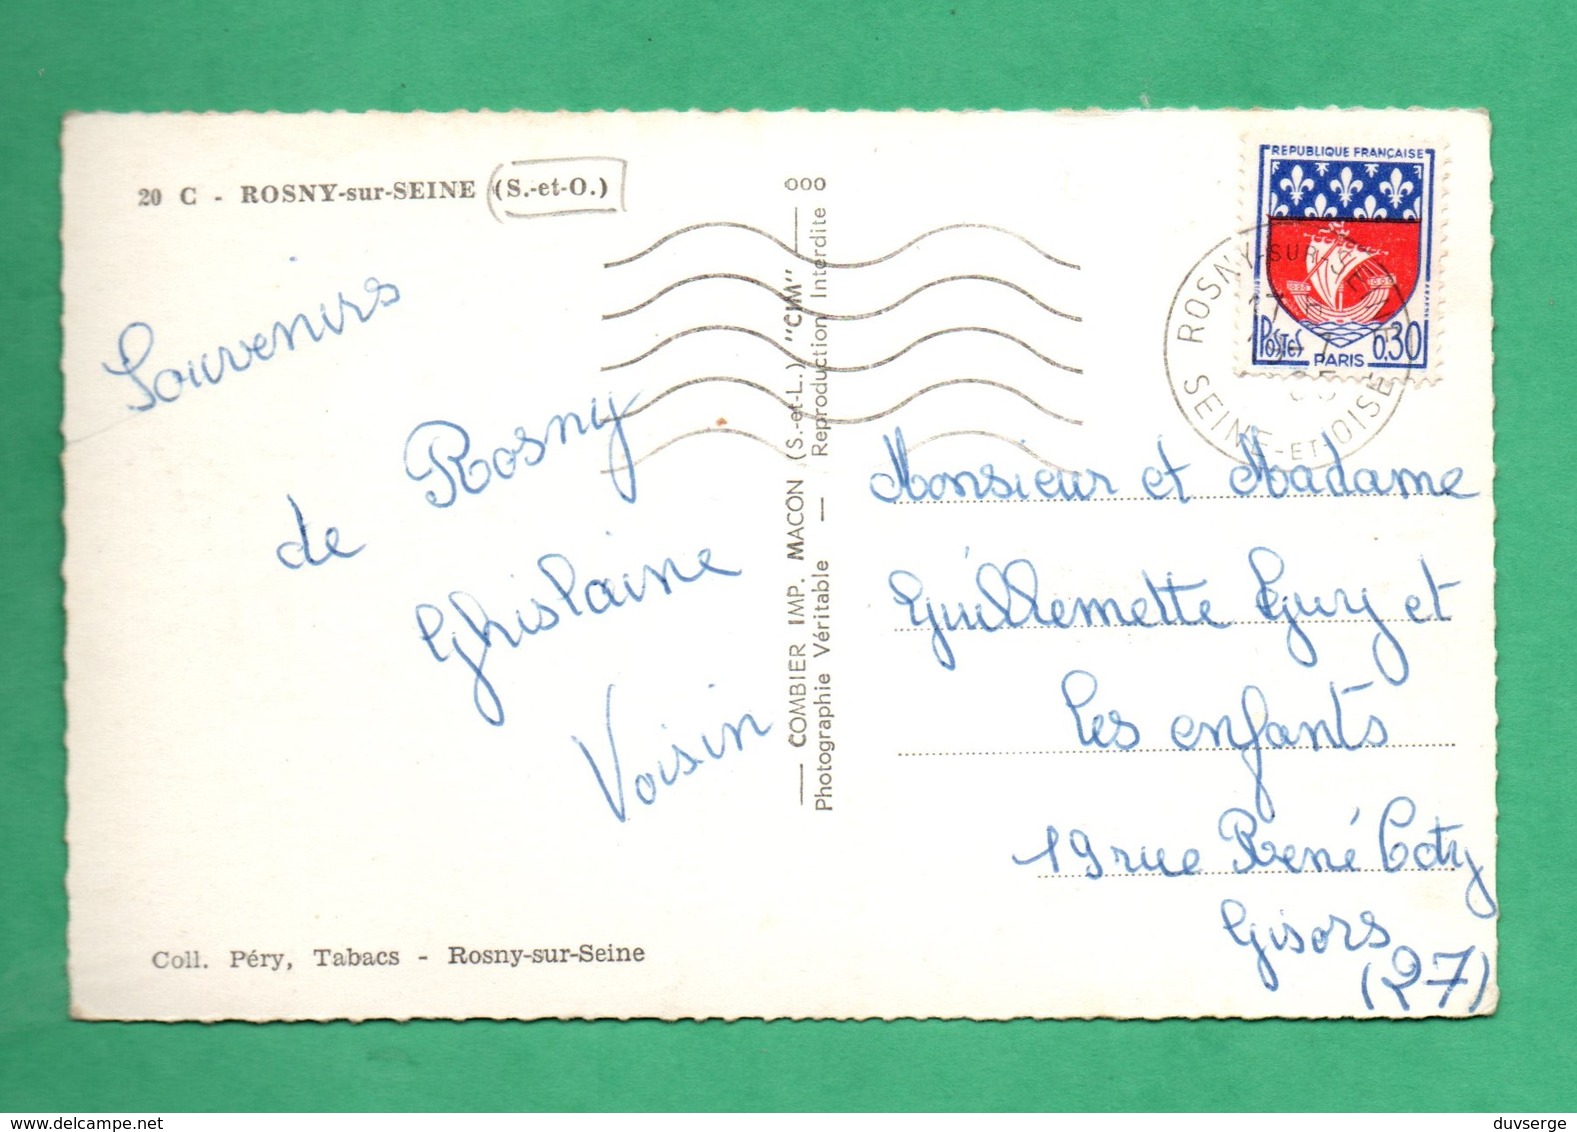 20 C - ROSNY-sur-SEINE (S.-et-O.)
Souvenirs
de Rosny
Ghislaine
Voisin
Coll. Péry, Tabacs - Rosny-sur-Seine
ooo
COMBIER IMP. MACON (S.-et-L.) "CIM"
Photographie Véritable — Reproduction Interdite
REPUBLIQUE FRANÇAISE
POSTES PARIS 0,30
ROSNY-SUR-SEINE
SEINE-ET-OISE
Monsieur et Madame
Guillemette Guy et
les enfants
19 rue René Coty
Gisors
(27)
www.delcampe.net
duvserge